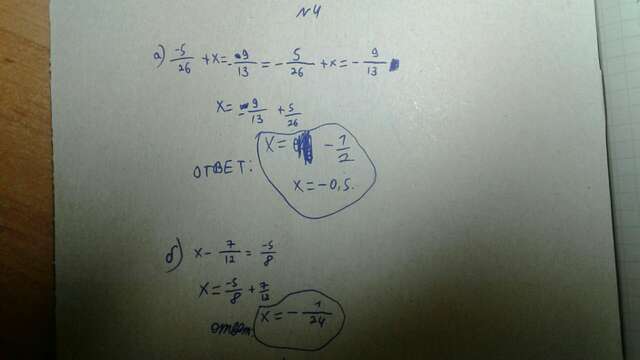 №4
а) -5/26 + x = -9/13 = -5/26 + x = -9/13
x = -9/13 + 5/26
x = -1/2
ОТВЕТ:
x = -0,5.
б) x - 7/12 = -5/8
x = -5/8 + 7/12
ответ: x = -1/24